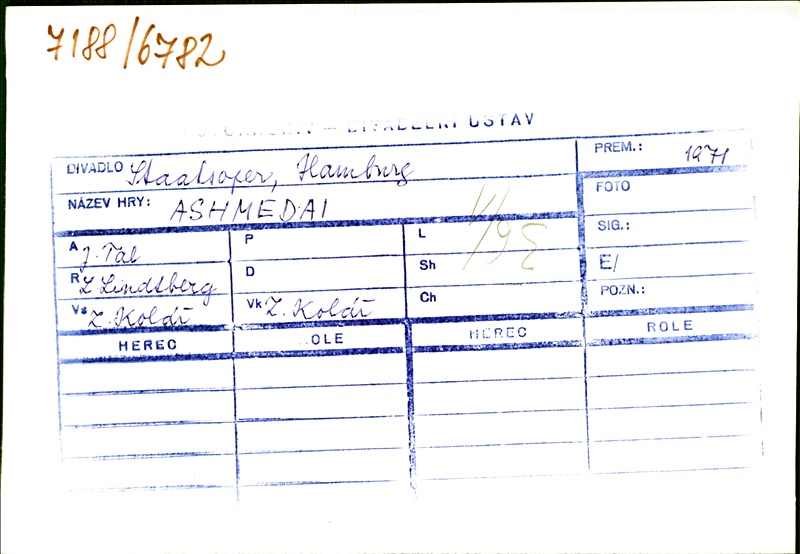 7188/6782
DIVADELNÍ ÚSTAV
DIVADLO Staatsoper, Hamburg
PREM.: 1971
NÁZEV HRY: ASHMEDAI
FOTO
A J. Tal
P
L
SIG.:
R L Lindtberg
D
Sh
E/
Vs Z. Koldí
Vk Z. Koldí
Ch
POZN.:
HEREC ROLE HEREC ROLE